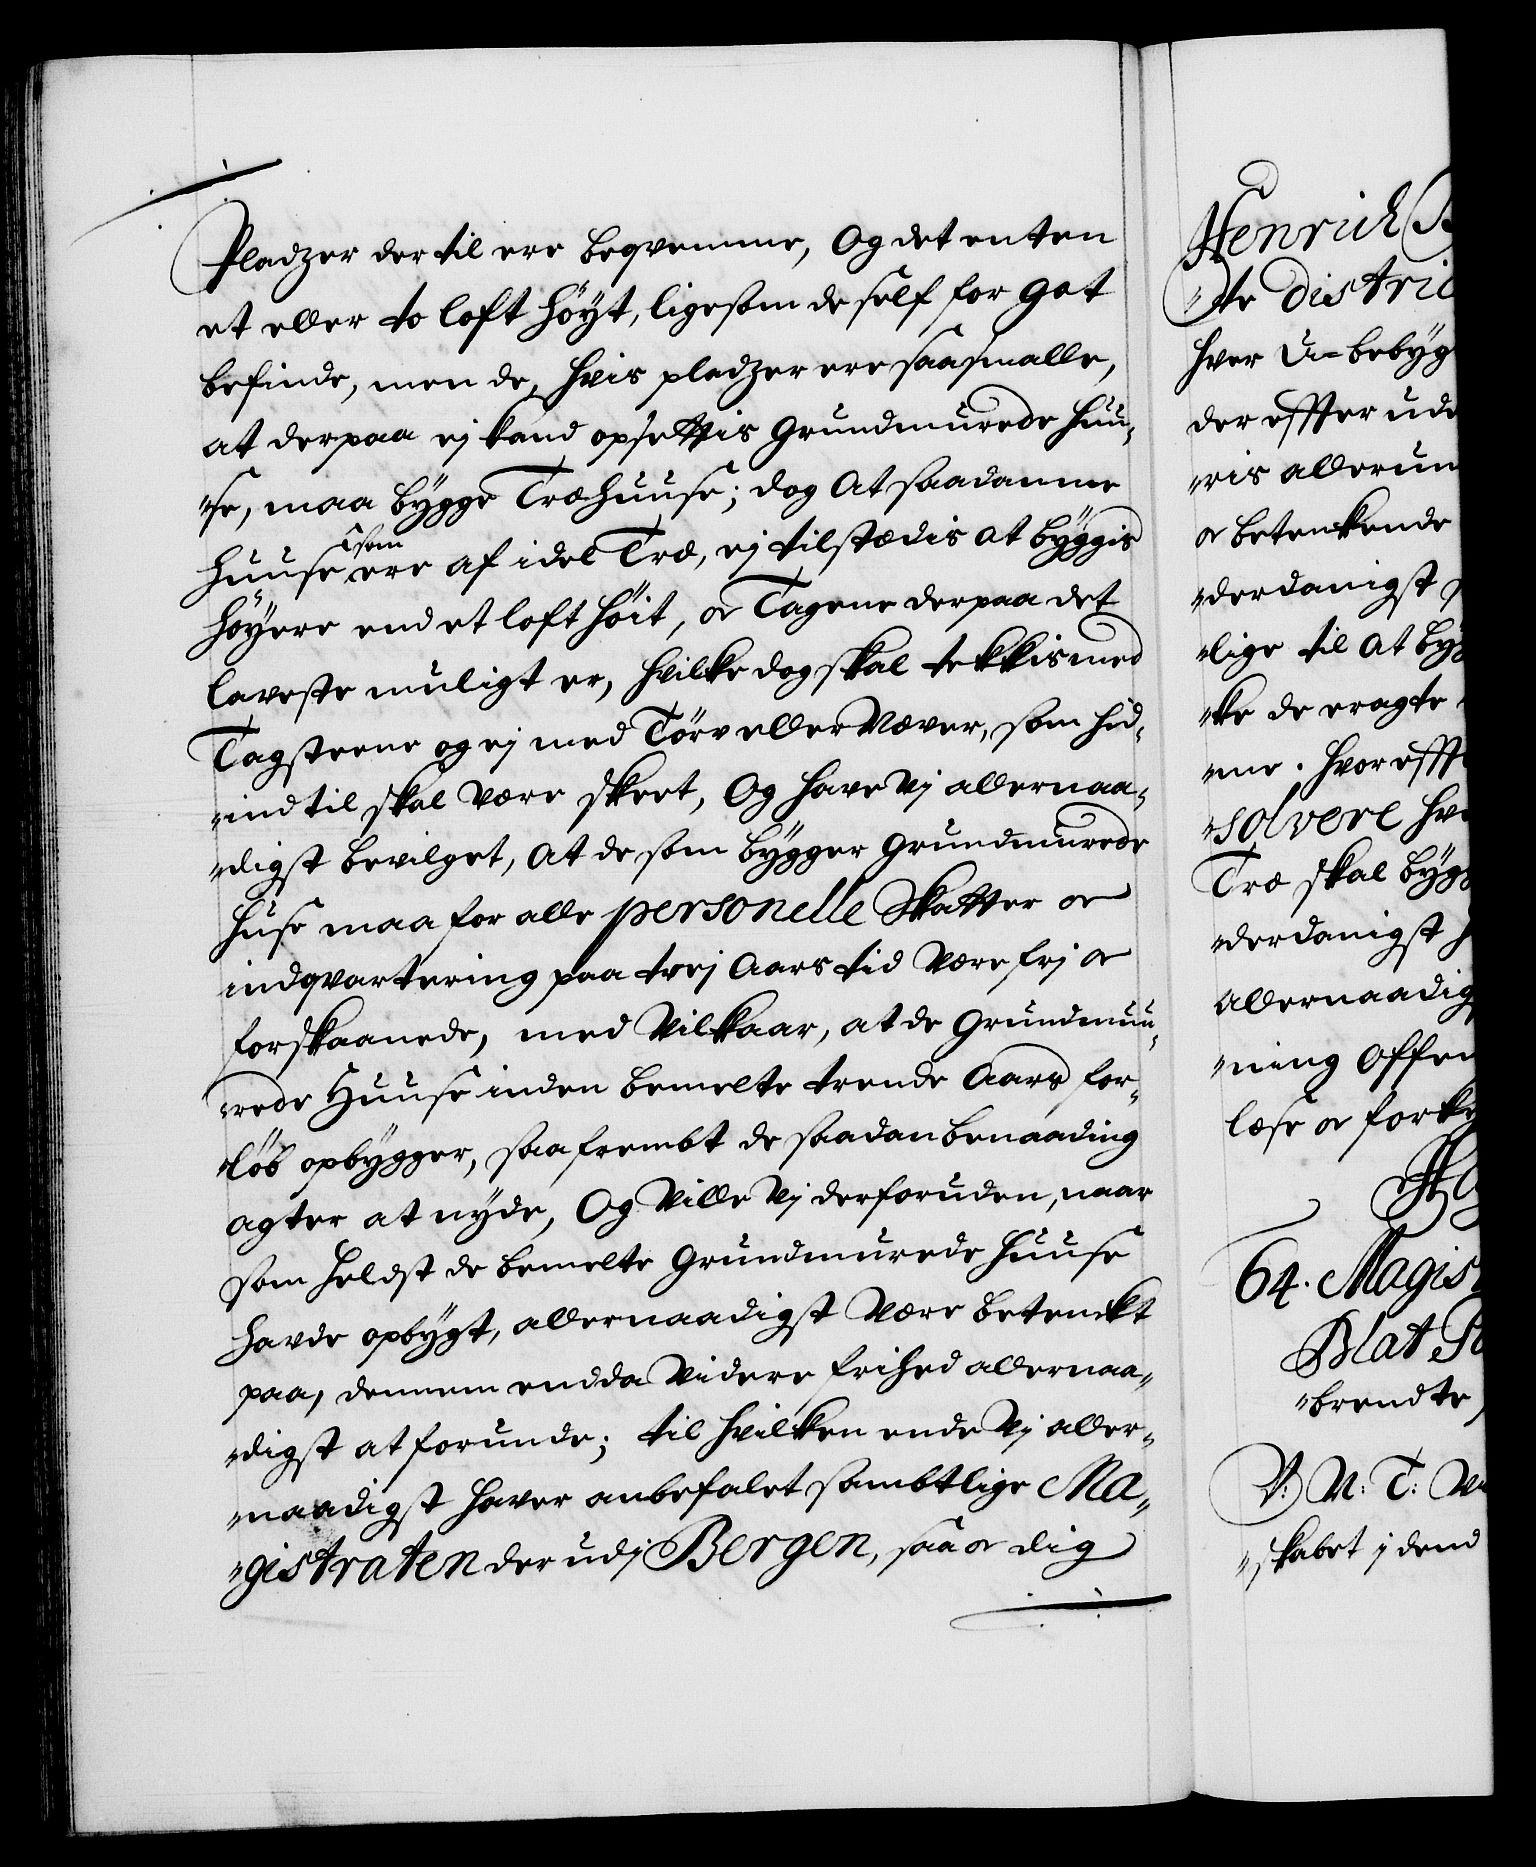 Pladzer der til ere beqvemme, Og det enten
et eller to loft höyt, ligesom de self for got
befinde, men de, hvis pladzer ere saa smalle,
at derpaa ej kand opsettis Grundmurede Huu-
"se, maa bÿgge Træhuuse; dog At saadanne
som
Huuse ere af idel Træ, ej tilstædis at bÿggis
höÿere end et loft höit, oc Tagene derpaa det
laveste muligt er, hvilke dog skal tekkis med
Tagsteene og ej med Törv eller Næver, som hid-
"ind til skal være skeet, Og have Vj allernaa-
"digst bevilget, At de som bÿgger Grundmurede
Huse maa for alle personelle Skatter oc
indqvartering paa trej Aars tid Være frj oc
forskaanede, med Vilkaar, at de Grundmuu-
"rede Huuse inden bemelte trende Aars for-
"löb opbÿgger, saafrembt de saadan benaading
agter at nÿde, Og Ville Vj derforuden, naar
som heldst de bemelte Grundmurede Huuse
havde opbÿgt, allernaadigst Være betenckt
paa, dennem endda Videre frihed allernaa-
"digst at forunde; til hvilken ende Vj aller-
"naadigst haver anbefalet sambtlige Ma-
"gistraten der udj Bergen, saa oc dig
Henrich
"te distric
hver U=bebÿg
der effter ud
"ris allerun
oc betenkende
"derdanigst
"lige til At bÿg
"ke de eragte
"me. hvoreffte
"solvere hv
Træ skal bÿgg
"derdanigst
Allernaadig
"ning Offen
læse oc forky
64. Magis
Blat
"brendte
V: N: T:
"skabet j dend